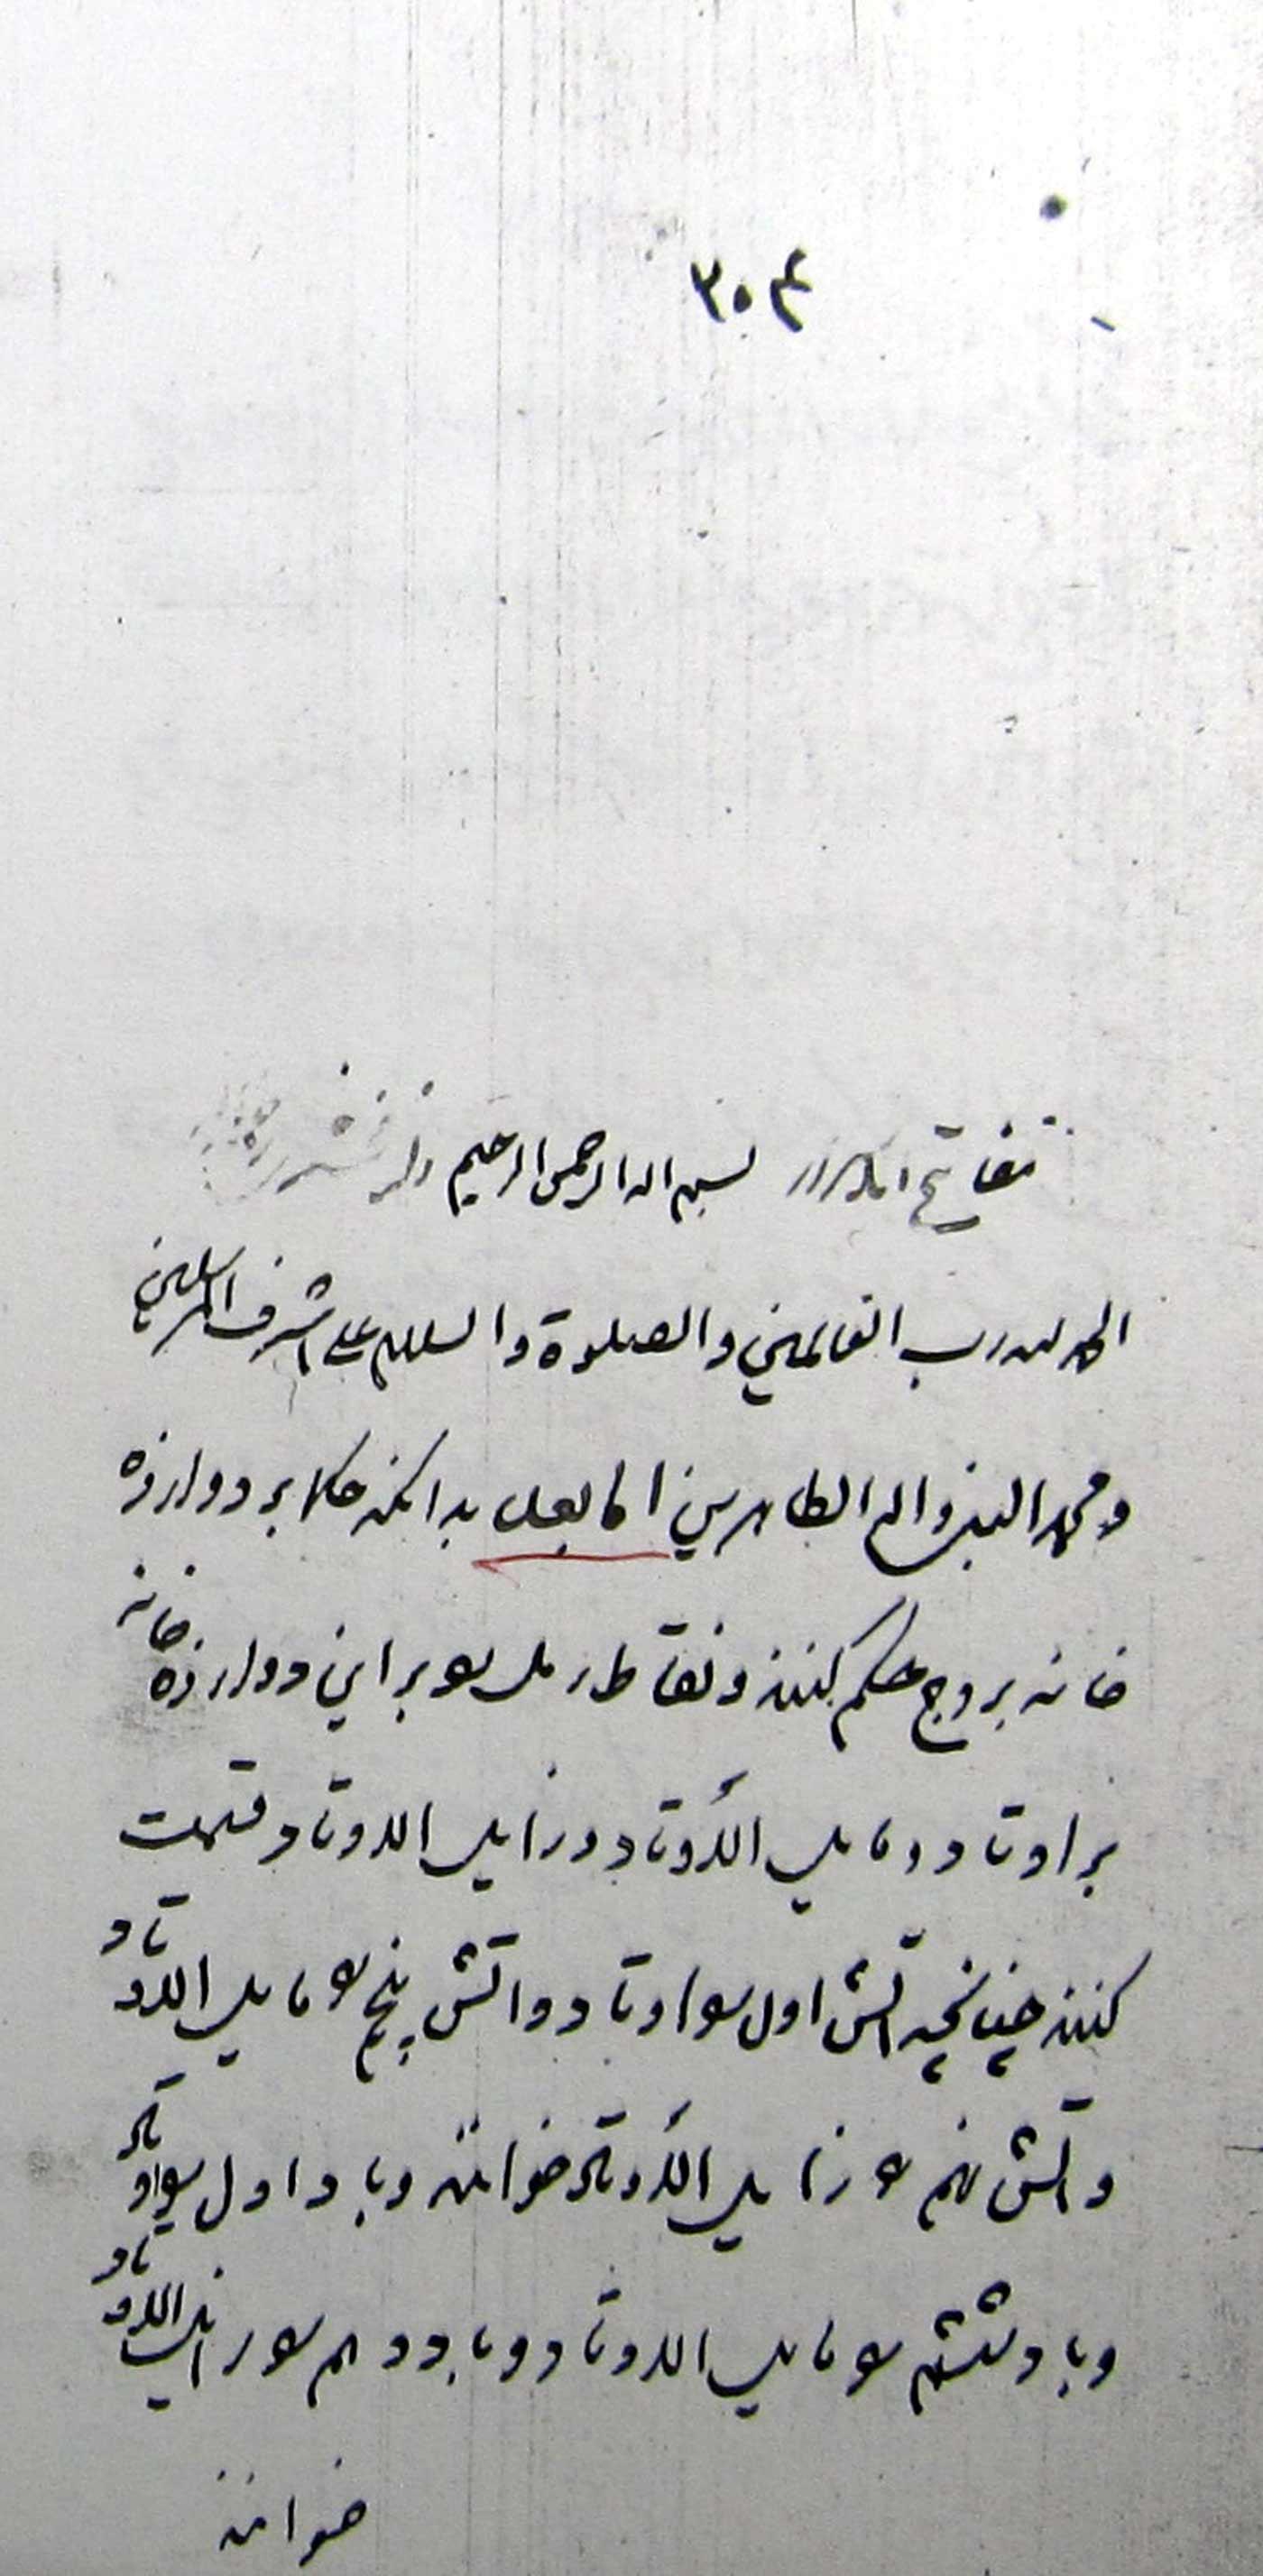 ۳۰۴
مفاتیح الاسرار بسم الله الرحمن الرحیم
الحمد لله رب العالمین والصلوة والسلام علی اشرف المرسلین
و محمد النبی واله الطاهرین اما بعد بدانکه حکما بر دوازده
خانه بروج حکم کنند و نقاط رمل را بر این دوازده خانه
بر اوتاد و مایل الاوتاد و زایل الاوتاد قسمت
کنند چنانچه آتش اول را اوتاد و آتش پنج را مایل الاوتاد
و آتش نهم را زایل الاوتاد خوانند و باد اول را اوتاد
و باد ششم را مایل الاوتاد و باد دهم را زایل الاوتاد
خوانند